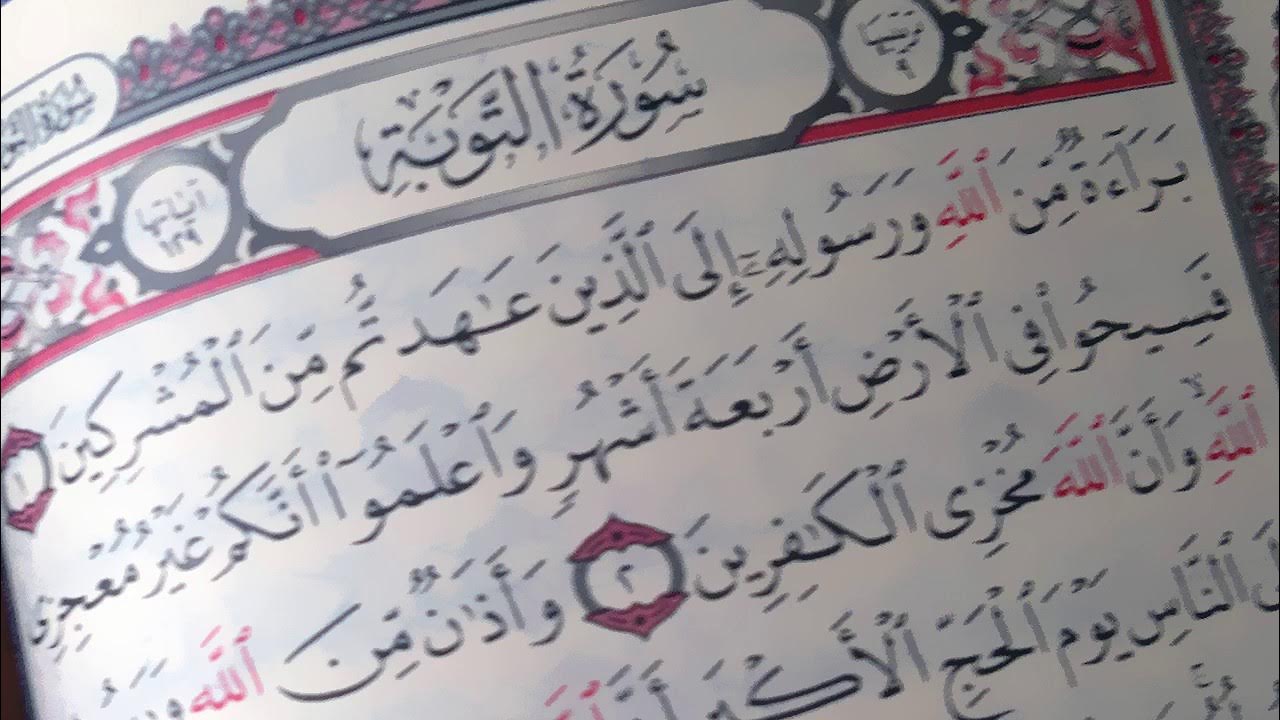 سُورَةُ التَّوْبَةِ
ترتيبها
٩
آياتها
١٢٩
بَرَآءَةٌ مِّنَ ٱللَّهِ وَرَسُولِهِۦٓ إِلَى ٱلَّذِينَ عَـٰهَدتُّم مِّنَ ٱلْمُشْرِكِينَ ١
فَسِيحُوا۟ فِى ٱلْأَرْضِ أَرْبَعَةَ أَشْهُرٍ وَٱعْلَمُوٓا۟ أَنَّكُمْ غَيْرُ مُعْجِزِى
ٱللَّهِ ۙ وَأَنَّ ٱللَّهَ مُخْزِى ٱلْكَـٰفِرِينَ ٢ وَأَذَٰنٌ مِّنَ ٱللَّهِ
ٱلنَّاسِ يَوْمَ ٱلْحَجِّ ٱلْأَكْبَرِ أَنَّ